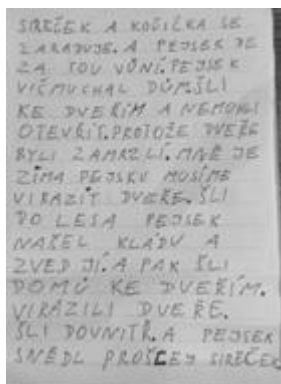 SIREČEK A KOČIČKA SE
ZARADUJE. A PEJSEK JE
ZA TOU VŮNÍ. PEJSEK
VIČMUCHAL DŮM ŠLI
KE DVEŘÍM A NEMOHLI
OTEVŘÍT. PROTOŽE DVEŘE
BYLI ZAMRZLÍ. MNĚ JE
ZIMA PEJSKU MUSÍME
VIRAZIT DVEŘE. ŠLI
DO LESA PEJSEK
NAŠEL KLÁDU A
ZVED JÍ. A PAK ŠLI
DOMŮ KE DVEŘÍM.
VIRAZILI DVEŘE.
ŠLI DOVNITŘ. A PEJSEK
SNĚDL PROŠLEJ SIREČEK